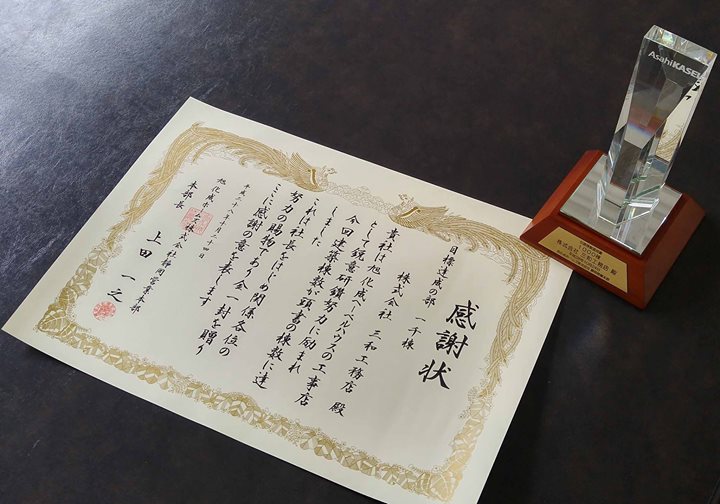 感謝状
目標達成の部 一千棟
株式会社 三和工務店 殿
貴社は旭化成ヘーベルハウスの工事店
として鋭意研鑽努力に励まれ
今回建築棟数が頭書の棟数に達
しました
これは社長をはじめ関係各位の
努力の賜物であり金一封を贈り
ここに感謝の意を表します
平成二十八年十月二十四日
旭化成ホームズ株式会社静岡営業本部
本部長 上田 一之
AsahiKASEI
1000棟
株式会社 三和工務店 殿